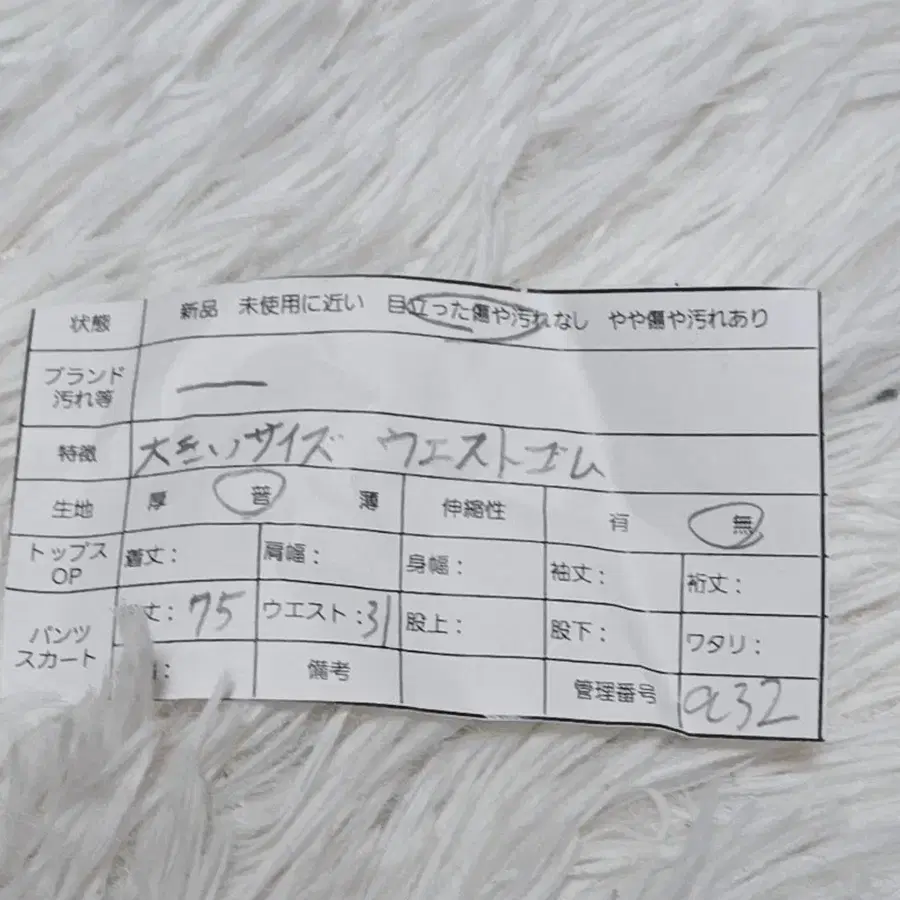 状態 新品 未使用に近い 目立った傷や汚れなし やや傷や汚れあり
ブランド
汚れ等 ー
特徴 大きいサイズ ウエストゴム
生地 厚 普 薄 伸縮性 有 無
トップス
OP 着丈： 肩幅： 身幅： 袖丈： 裄丈：
パンツ
スカート 丈：75 ウエスト：31 股上： 股下： ワタリ：
： 備考 管理番号 a32